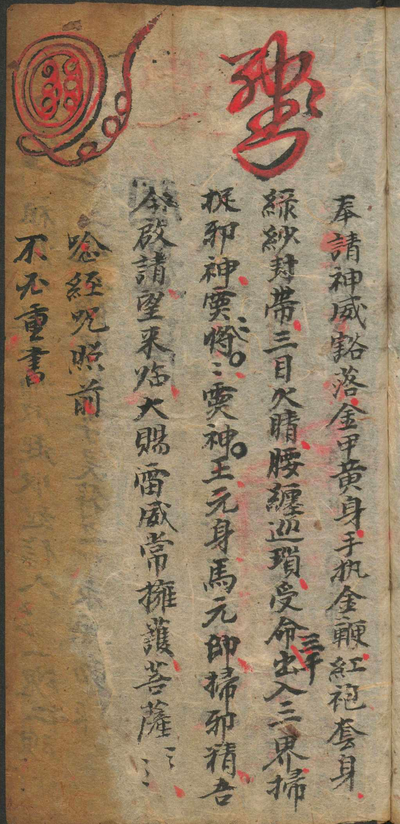 奉請神威豁落金甲黃身手执金鞭紅袍套身
綠紗封帶三目火睛腰纏巡瑣受命三千出入三界掃
捉邪神灵將〻灵神王元身馬元帥掃邪精吾
今啟請望来临大賜雷威常擁護菩薩〻〻
唸經咒照前
不必重書